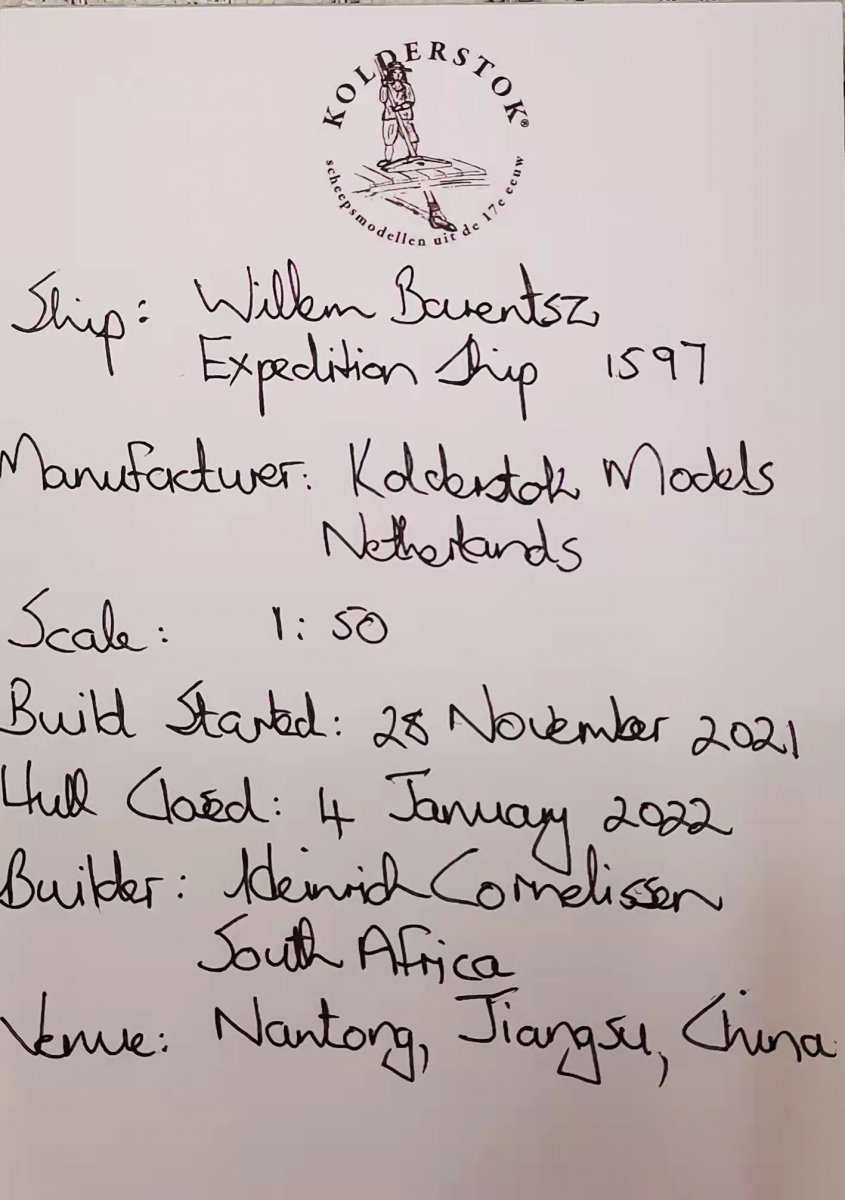 KOLDERSTOK®
scheepsmodellen uit de 17e eeuw
Ship: Willem Barentsz
Expedition Ship 1597
Manufacturer: Kolderstok Models
Netherlands
Scale: 1:50
Build Started: 28 November 2021
Hull Closed: 4 January 2022
Builder: Heinrich Cornelissen
South Africa
Venue: Nantong, Jiangsu, China